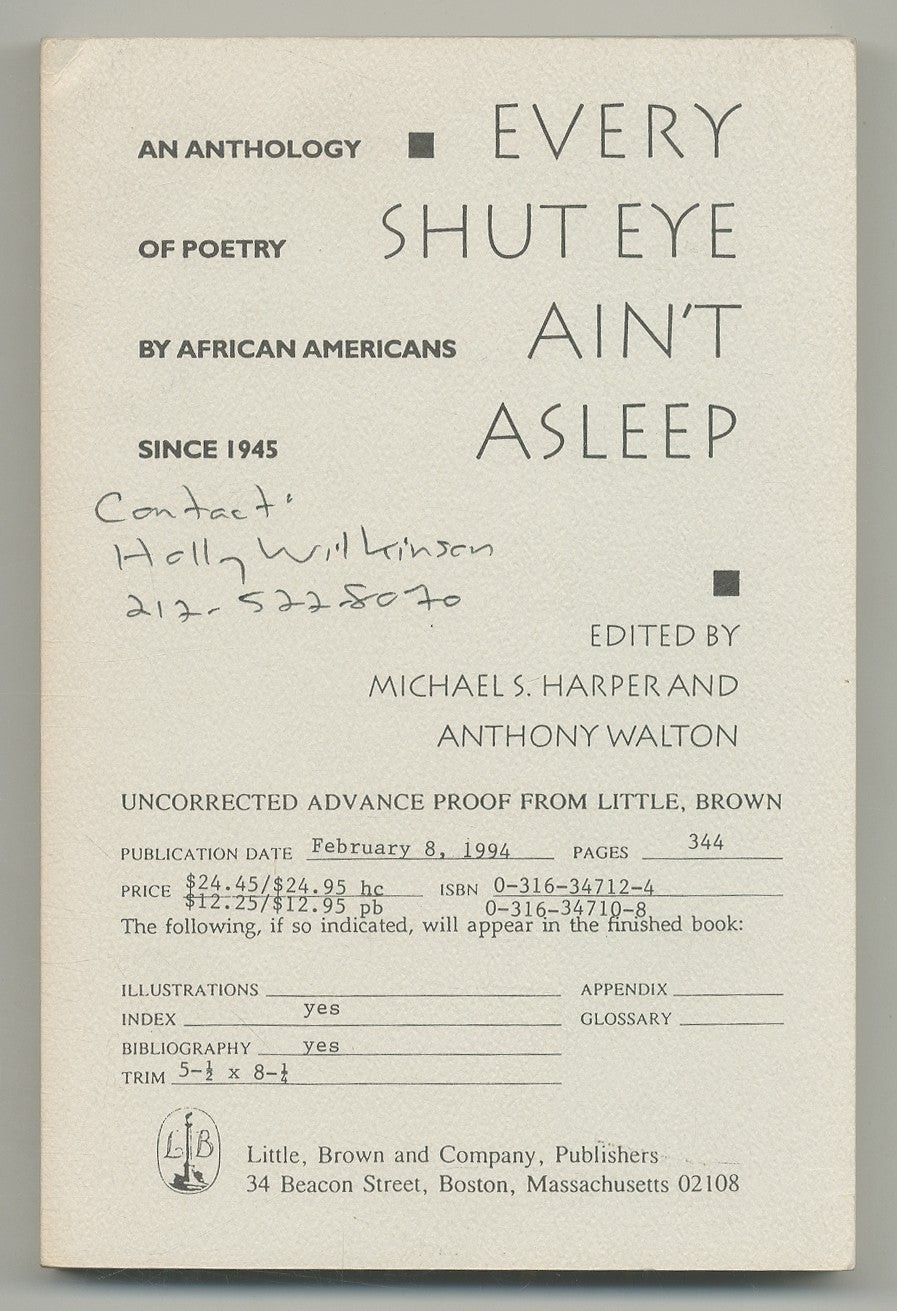 AN ANTHOLOGY ■ EVERY
OF POETRY SHUT EYE
BY AFRICAN AMERICANS AIN'T
SINCE 1945 ASLEEP
Contact:
Holly Wilkinson
212-522-8070
■
EDITED BY
MICHAEL S. HARPER AND
ANTHONY WALTON
UNCORRECTED ADVANCE PROOF FROM LITTLE, BROWN
PUBLICATION DATE February 8, 1994 PAGES 344
PRICE $24.45/$24.95 hc ISBN 0-316-34712-4
$12.25/$12.95 pb 0-316-34710-8
The following, if so indicated, will appear in the finished book:
ILLUSTRATIONS APPENDIX
INDEX yes GLOSSARY
BIBLIOGRAPHY yes
TRIM 5-½ x 8-¼
LB
Little, Brown and Company, Publishers
34 Beacon Street, Boston, Massachusetts 02108